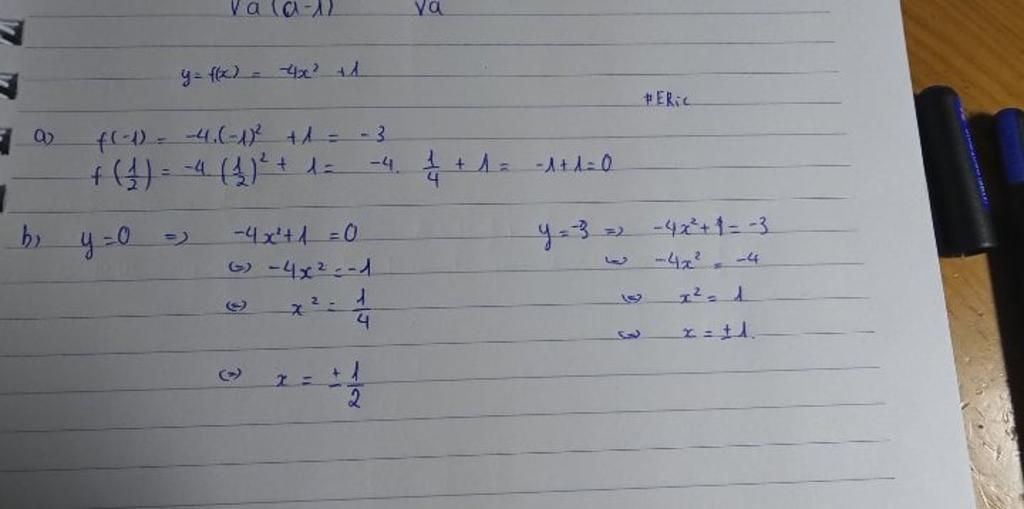 √a(a-1) √a
y = f(x) = -4x² + 1
#ERic
a) f(-1) = -4.(-1)² + 1 = -3
f(1/2) = -4.(1/2)² + 1 = -4. 1/4 + 1 = -1+1=0
b) y=0 => -4x²+1 = 0 y=-3 => -4x²+1=-3
<=> -4x² = -1 <=> -4x² = -4
<=> x² = 1/4 <=> x² = 1
<=> x = ±1.
<=> x = ±1/2